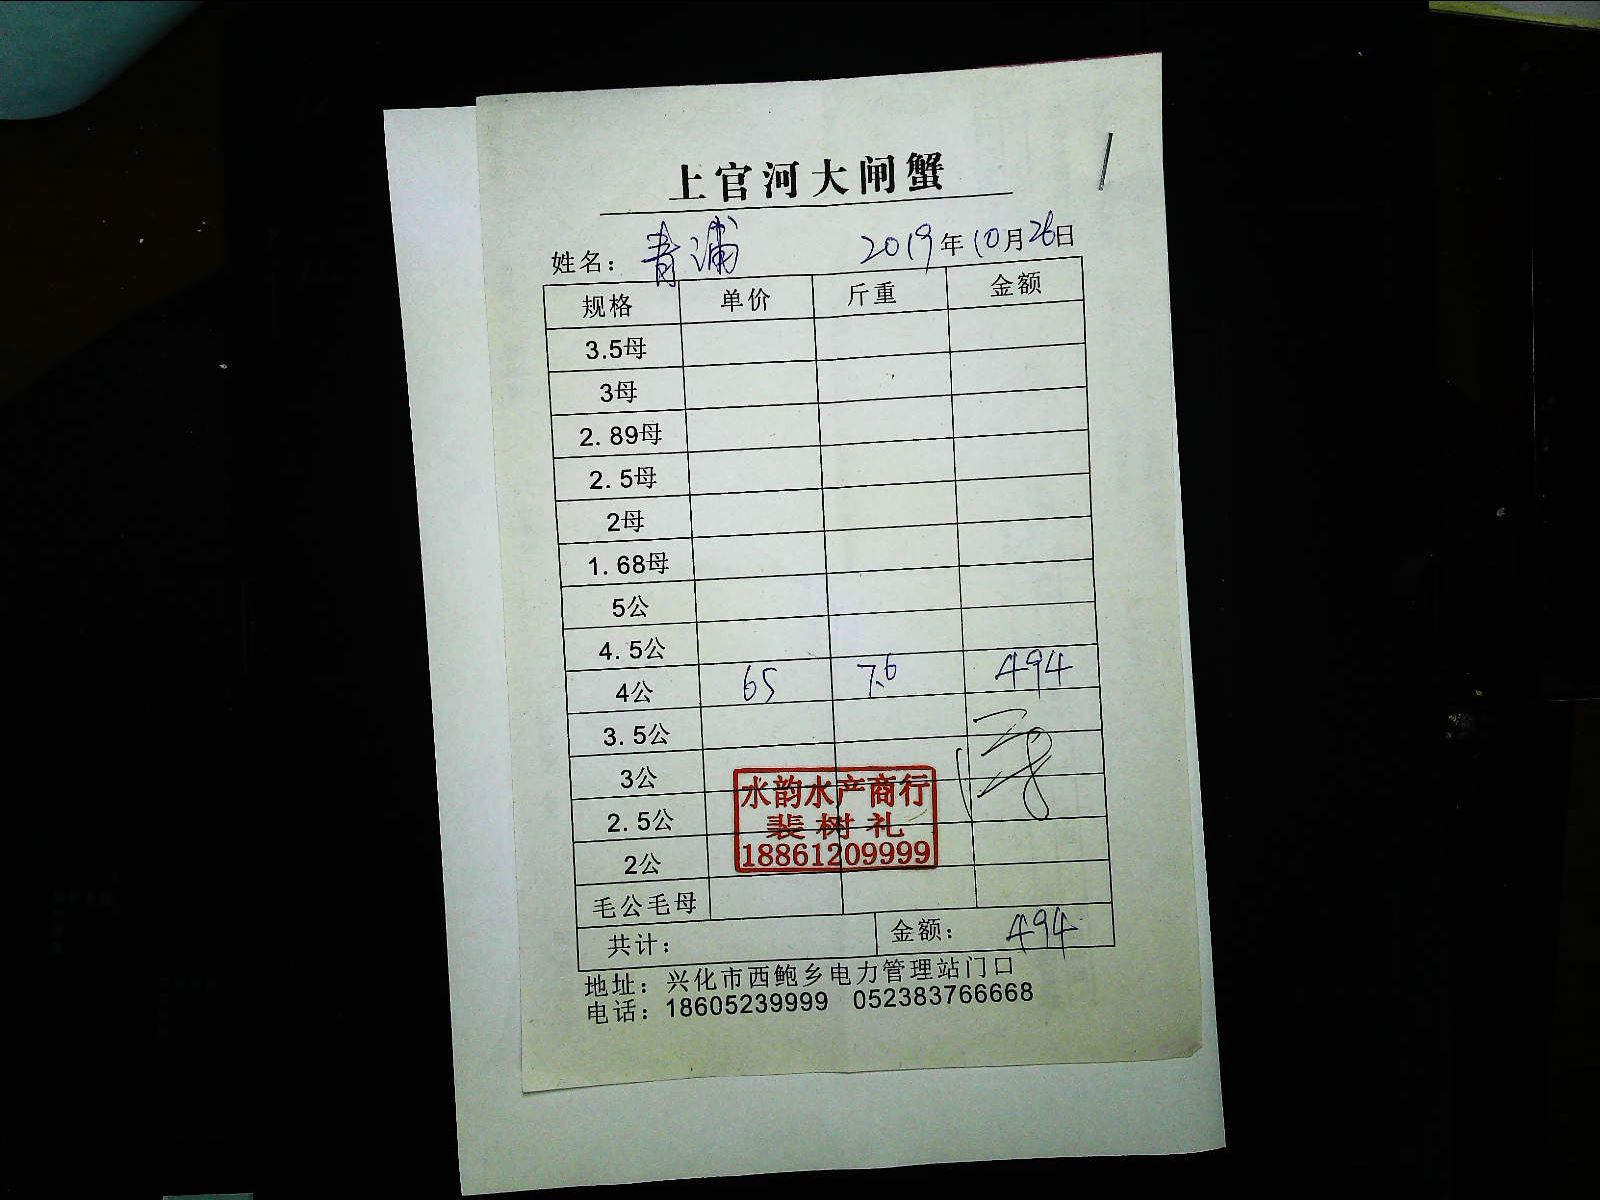 上官河大闸蟹
姓名：青浦 2019年10月26日
规格 单价 斤重 金额
3.5母
3母
2.89母
2.5母
2母
1.68母
5公
4.5公
4公 65 7.6 494
3.5公
3公
2.5公
2公
毛公毛母
水韵水产商行
裴树礼
18861209999
共计： 金额： 494
地址：兴化市西鲍乡电力管理站门口
电话：18605239999 052383766668